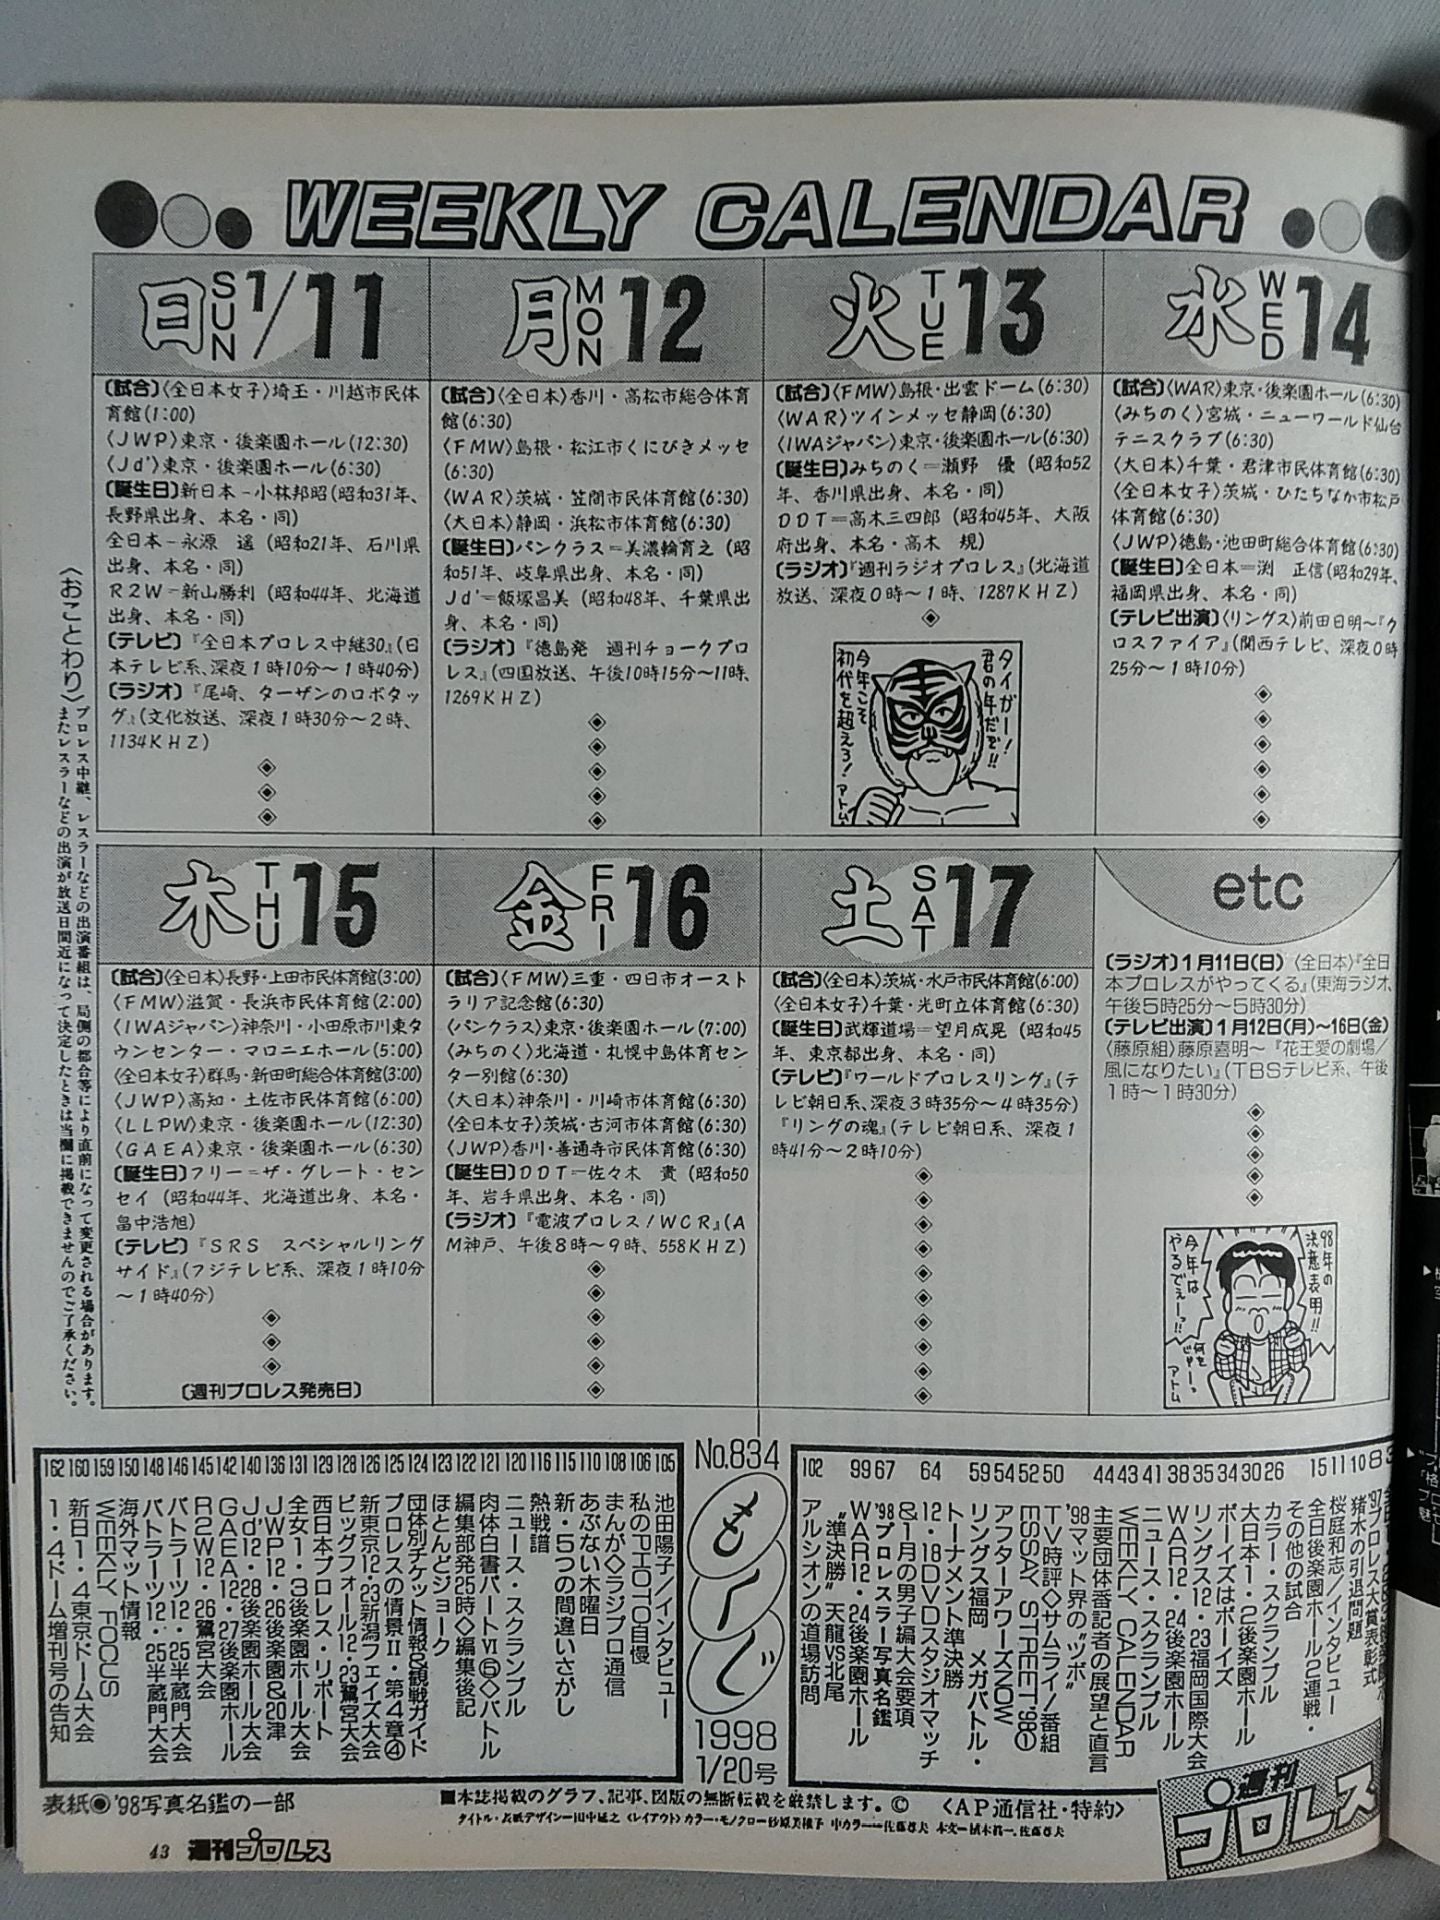 WEEKLY CALENDAR
日 SUN 1/11
〔試合〕〈全日本女子〉埼玉・川越市民体
育館(1:00)
〈JWP〉東京・後楽園ホール(12:30)
〈Jd'〉東京・後楽園ホール(6:30)
〔誕生日〕新日本-小林邦昭(昭和31年、
長野県出身、本名・同)
全日本-永源 遥(昭和21年、石川県
出身、本名・同)
R2W-新山勝利(昭和44年、北海道
出身、本名・同)
〔テレビ〕『全日本プロレス中継30』(日
本テレビ系、深夜1時10分～1時40分)
〔ラジオ〕『尾崎、ターザンのロボタッ
グ』(文化放送、深夜1時30分～2時、
1134KHZ)
月 MON 12
〔試合〕〈全日本〉香川・高松市総合体育
館(6:30)
〈FMW〉島根・松江市くにびきメッセ
(6:30)
〈WAR〉茨城・笠間市民体育館(6:30)
〈大日本〉静岡・浜松市体育館(6:30)
〔誕生日〕パンクラス=美濃輪育之(昭
和51年、岐阜県出身、本名・同)
Jd'=飯塚昌美(昭和48年、千葉県出
身、本名・同)
〔ラジオ〕『徳島発 週刊チョークプロ
レス』(四国放送、午後10時15分～11時、
1269KHZ)
火 TUE 13
〔試合〕〈FMW〉島根・出雲ドーム(6:30)
〈WAR〉ツインメッセ静岡(6:30)
〈IWAジャパン〉東京・後楽園ホール(6:30)
〔誕生日〕みちのく=瀬野 優(昭和52
年、香川県出身、本名・同)
DDT=高木三四郎(昭和45年、大阪
府出身、本名・高木 規)
〔ラジオ〕『週刊ラジオプロレス』(北海道
放送、深夜0時～1時、1287KHZ)
タイガー!
君の年だぞ!!
今年こそ
初代を超えろ!
アトム
水 WED 14
〔試合〕〈WAR〉東京・後楽園ホール(6:30)
〈みちのく〉宮城・ニューワールド仙台
テニスクラブ(6:30)
〈大日本〉千葉・君津市民体育館(6:30)
〈全日本女子〉茨城・ひたちなか市松戸
体育館(6:30)
〈JWP〉徳島・池田町総合体育館(6:30)
〔誕生日〕全日本=渕 正信(昭和29年、
福岡県出身、本名・同)
〔テレビ出演〕〈リングス〉前田日明～『ク
ロスファイア』(関西テレビ、深夜0時
25分～1時10分)
木 THU 15
〔試合〕〈全日本〉長野・上田市民体育館(3:00)
〈FMW〉滋賀・長浜市民体育館(2:00)
〈IWAジャパン〉神奈川・小田原市川東タ
ウンセンター・マロニエホール(5:00)
〈全日本女子〉群馬・新田町総合体育館(3:00)
〈JWP〉高知・土佐市民体育館(6:00)
〈LLPW〉東京・後楽園ホール(12:30)
〈GAEA〉東京・後楽園ホール(6:30)
〔誕生日〕フリー=ザ・グレート・セン
セイ(昭和44年、北海道出身、本名・
畠中浩旭)
〔テレビ〕『SRS スペシャルリング
サイド』(フジテレビ系、深夜1時10分
～1時40分)
〔週刊プロレス発売日〕
金 FRI 16
〔試合〕〈FMW〉三重・四日市オースト
ラリア記念館(6:30)
〈パンクラス〉東京・後楽園ホール(7:00)
〈みちのく〉北海道・札幌中島体育セン
ター別館(6:30)
〈大日本〉神奈川・川崎市体育館(6:30)
〈全日本女子〉茨城・古河市体育館(6:30)
〈JWP〉香川・善通寺市民体育館(6:30)
〔誕生日〕DDT=佐々木 貴(昭和50
年、岩手県出身、本名・同)
〔ラジオ〕『電波プロレス!WCR』(A
M神戸、午後8時～9時、558KHZ)
土 SAT 17
〔試合〕〈全日本〉茨城・水戸市民体育館(6:00)
〈全日本女子〉千葉・光町立体育館(6:00)
〔誕生日〕武輝道場=望月成晃(昭和45
年、東京都出身、本名・同)
〔テレビ〕『ワールドプロレスリング』(テ
レビ朝日系、深夜3時35分～4時35分)
『リングの魂』(テレビ朝日系、深夜1
時41分～2時10分)
etc
〔ラジオ〕1月11日(日)〈全日本〉『全日
本プロレスがやってくる』(東海ラジオ、
午後5時25分～5時30分)
〔テレビ出演〕1月12日(月)～16日(金)
〈藤原組〉藤原喜明～『花王愛の劇場/
風になりたい』(TBSテレビ系、午後
1時～1時30分)
98年の
決意表明!!
今年は
やるでぇーっ!!
何を
じゃーっ
アトム
〈おことわり〉プロレス中継、レスラーなどの出演番組は、局側の都合等により直前になって変更される場合があります。
またレスラーなどの出演が放送日間近になって決定したときは当欄に掲載できませんのでご了承ください。
No.834
もくじ
1998
1/20号
3
8 '97プロレス大賞表彰式
10 猪木の引退問題
11 桜庭和志/インタビュー
15 全日後楽園ホール2連戦・
その他の試合
26 カラー・スクランブル
30 大日本1・2後楽園ホール
34 ボーイズはボーイズ
35 リングス12・23福岡国際大会
38 WAR12・24後楽園ホール
41 ニュース・スクランブル
43 WEEKLY CALENDAR
44 主要団体番記者の展望&直言
'98マット界の"ツボ"
50 TV時評◇サムライ/番組
52 ESSAY STREET'98①
54 アフターアワーズNOW
59 リングス福岡 メガバトル・
トーナメント準決勝
64 12・18DVDスタジオマッチ
&1月の男子編大会要項
67 '98プロレスラー写真名鑑
99 WAR12・24後楽園ホール
"準決勝"天龍VS北尾
102 アルシオンの道場訪問
105 池田陽子/インタビュー
106 私のPHOTO自慢
108 まんが◇ラジプロ通信
110 あぶない木曜日
115 新・5つの間違いさがし
116 熱戦譜
120 ニュース・スクランブル
121 肉体白書パートⅥ⑤◇バトル
122 編集部発25時◇編集後記
123 ほとんどジョーク
124 団体別チケット情報&観戦ガイド
125 プロレスの情景Ⅱ・第4章④
126 新東京12・23新潟フェイズ大会
128 ビッグフォール12・23鷲宮大会
129 西日本プロレス・リポート
131 全女1・3後楽園ホール大会
136 JWP12・26後楽園&20津
140 Jd'12・28後楽園ホール大会
142 GAEA12・27後楽園ホール
145 R2W12・26鷲宮大会
146 バトラーツ12・25半蔵門大会
148 バトラーツ12・25半蔵門大会
150 海外マット情報
159 WEEKLY FOCUS
160 新日1・4東京ドーム大会
162 1・4ドーム増刊号の告知
表紙◉'98写真名鑑の一部
■本誌掲載のグラフ、記事、図版の無断転載を厳禁します。© 〈AP通信社・特約〉
週刊プロレス
43 週刊プロレス